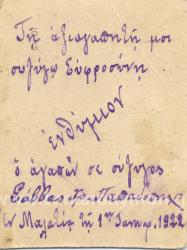 Τῇ ἀξιαγαπητῇ μοι
συζύγῳ Εὐφροσύνῃ
ἐνθύμιον
ὁ ἀγαπῶν σε σύζυγος
Σάββας Χρ. Παπαδόπ
Ἐν Μαλατίᾳ τῇ 1ῃ Ἰανουαρ. 1922